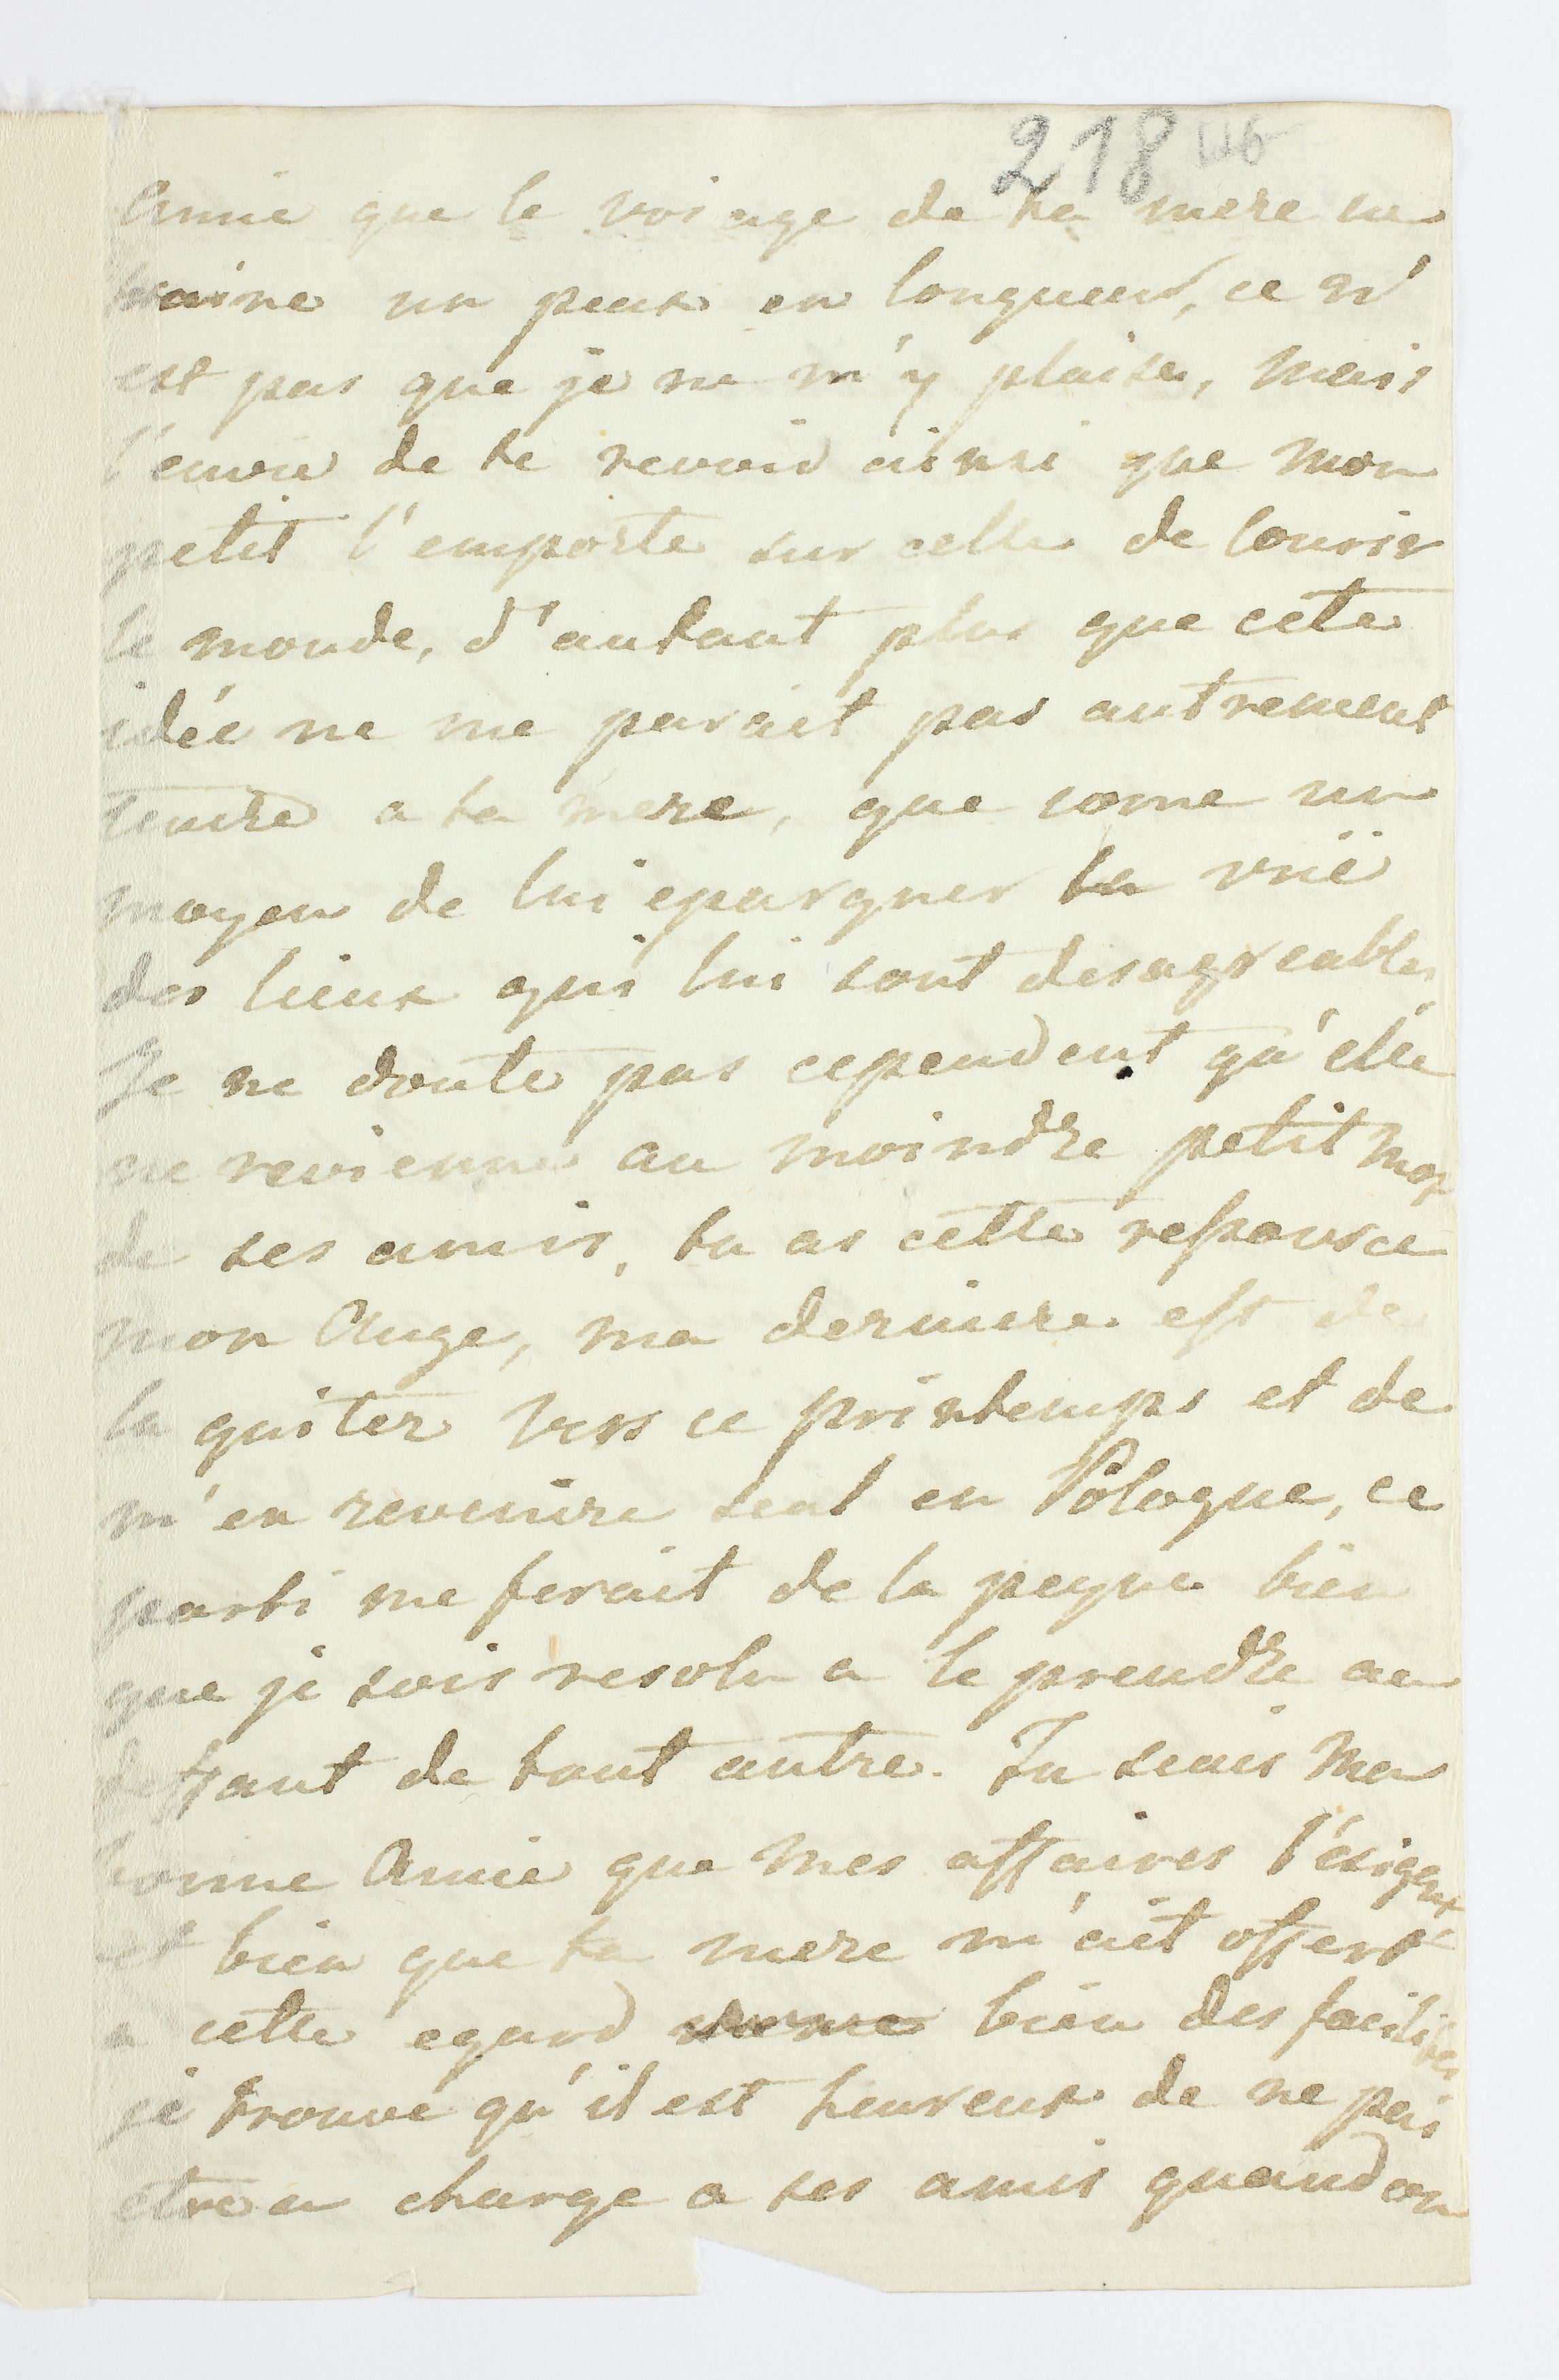 218
Amie que le voiage de ta mere ne
traine un peux en longueur, ce n'
est pas que je ne m'y plaise, mais
l'envie de te revoir ainsi que mon
petit l'emporte sur celle de courir
le monde, d'autant plus que cete
idée ne me parait pas autrement
tenire a ta mere, que come un
moyen de lui epargner la vüe
des lieux qui lui sont desagreables,
Je ne doute pas cependent qu'elle
ne revienne au moindre petit mot
de ses amis, tu as cette responsce
mon Ange, ma derniere est de
la quiter vers ce printemps et de
m'en revenire seul en Pologne, ce
parti me ferait de la peyne bien
que je sois resolu a le prendre au
deffaut de tout autre. Tu scais ma
bonne Amie que mes affaires l'exigent
et bien que ta mere m'ait offert
a cette egard bien des facilites,
je trouve qu'il est heureux de ne pas
etre a charge a ses amis quand on